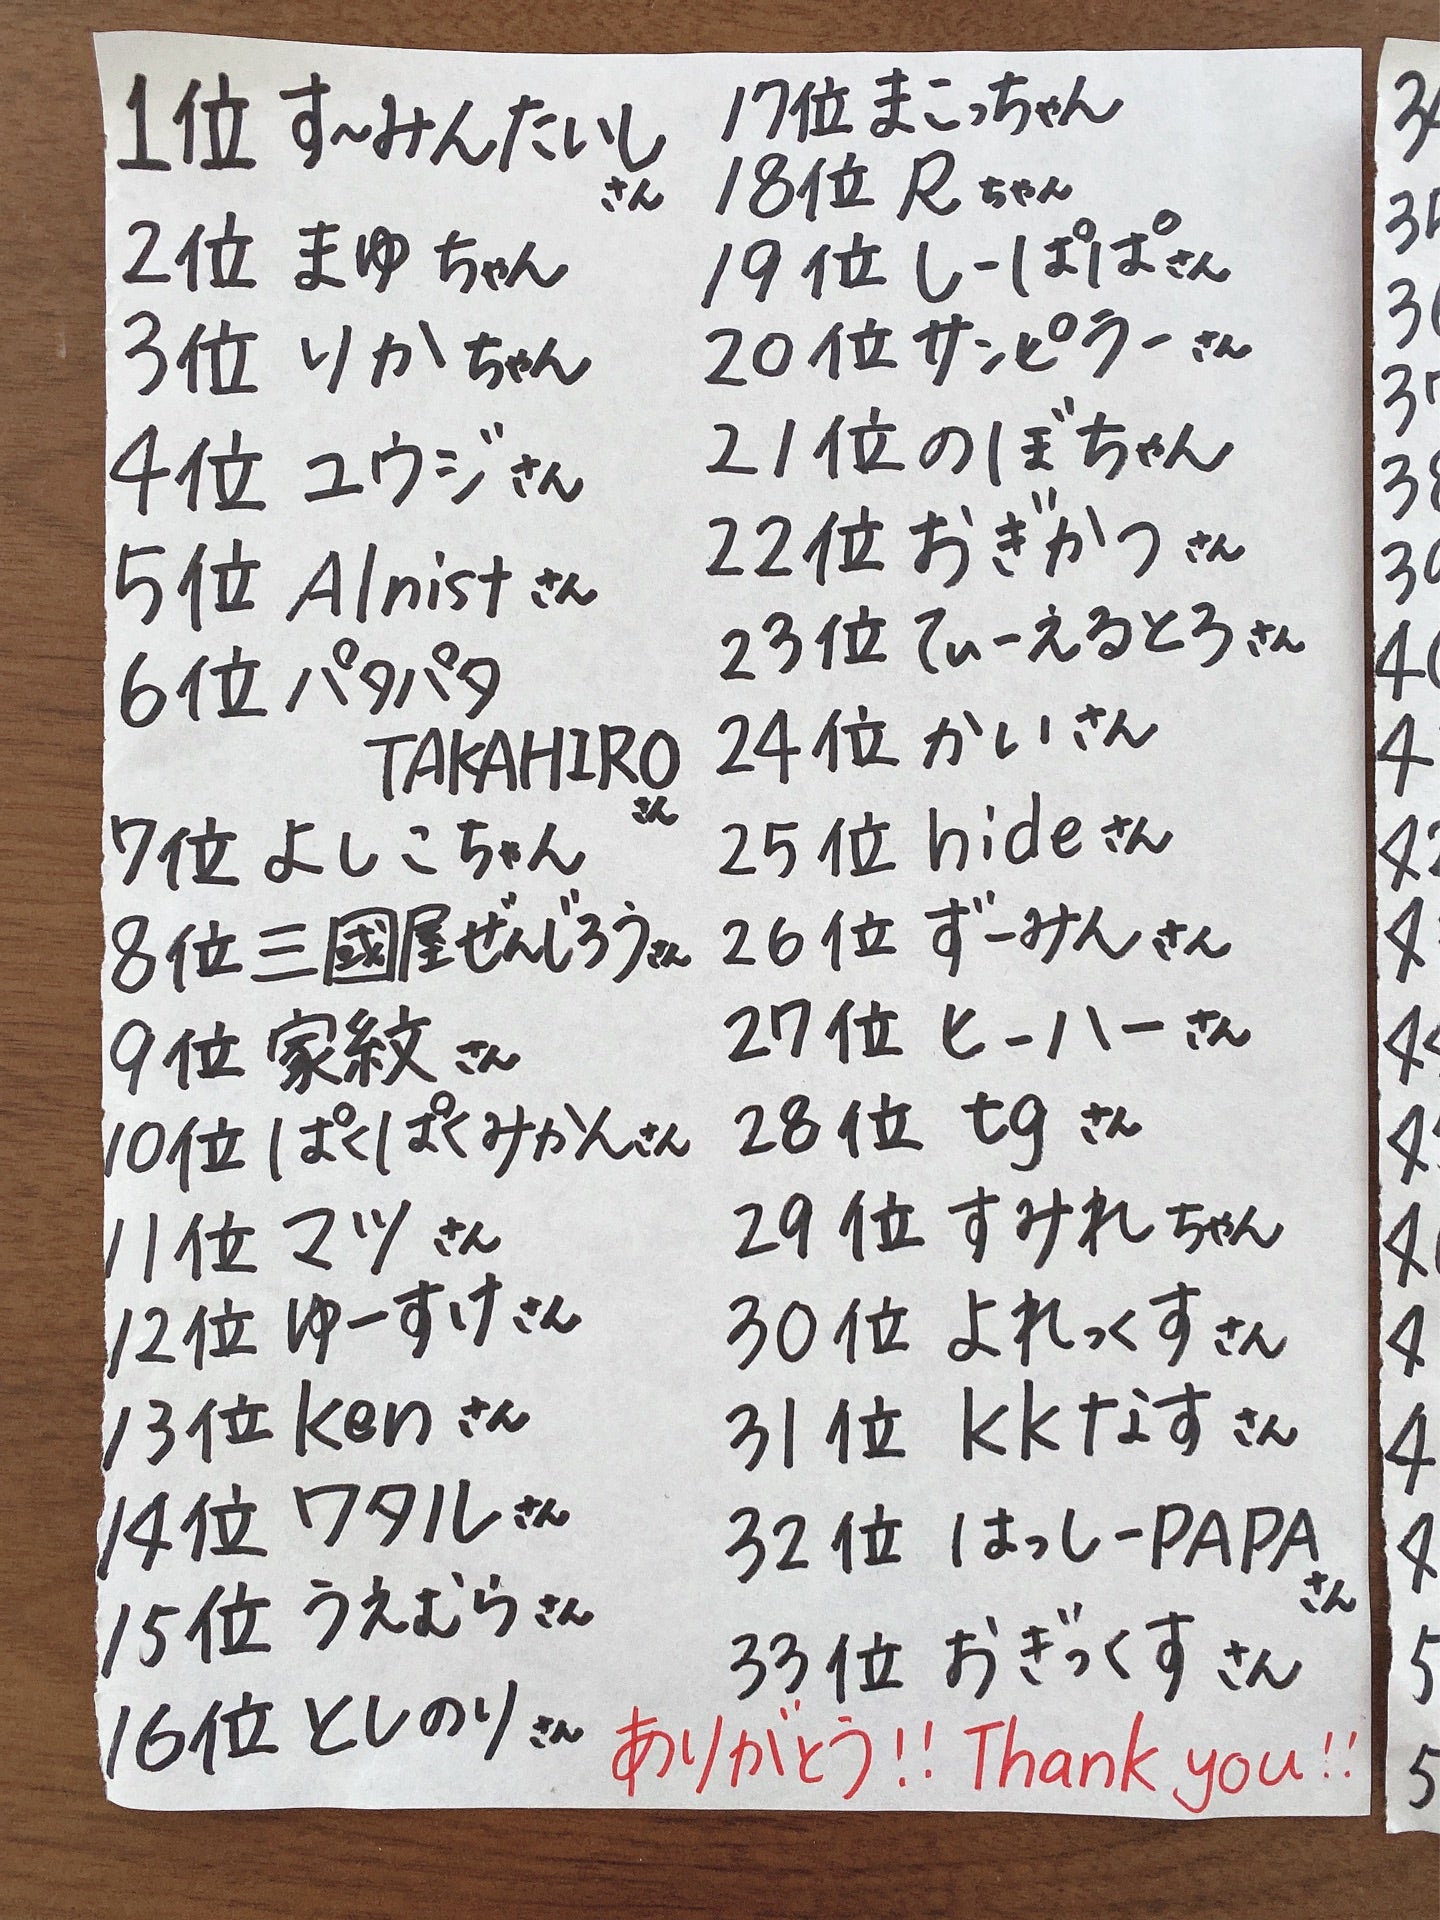 1位 す〜みんたいし
さん
2位 まゆちゃん
3位 りかちゃん
4位 ユウジさん
5位 Alnistさん
6位 パタパタ
TAKAHIRO
さん
7位 よしこちゃん
8位 三國屋ぜんじろうさん
9位 家紋さん
10位 ぱくぱくみかんさん
11位 マツさん
12位 ゆーすけさん
13位 kenさん
14位 ワタルさん
15位 うえむらさん
16位 としのりさん
17位 まこっちゃん
18位 Rちゃん
19位 しーぱぱさん
20位 サンピラーさん
21位 のぼちゃん
22位 おぎかつさん
23位 てぃーえるとろさん
24位 かいさん
25位 hideさん
26位 ずーみんさん
27位 ヒーハーさん
28位 tgさん
29位 すみれちゃん
30位 よれっくすさん
31位 kkなすさん
32位 はっしーPAPA
さん
33位 おぎっくすさん
ありがとう!! Thank you!!
35
37
38
39
42